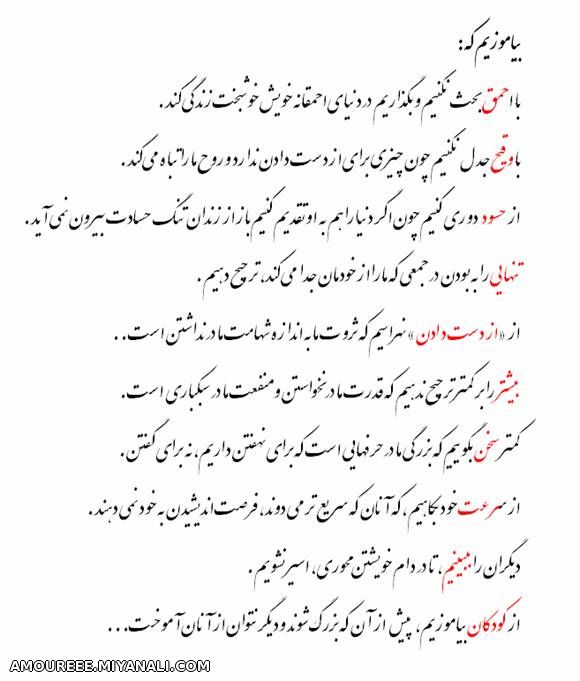 بیاموزیم که:
با احمق بحث نکنیم و بگذاریم در دنیای احمقانه خویش خوشبخت زندگی کند.
با وقیح جدل نکنیم چون چیزی برای از دست دادن ندارد و روح ما را تباه می‌کند.
از حسود دوری کنیم چون اگر دنیا را هم به او تقدیم کنیم باز از زندان تنگ حسادت بیرون نمی‌آید.
تنهایی را به بودن در جمعی که ما را از خودمان جدا می‌کند، ترجیح دهیم.
از «از دست دادن» نهراسیم که ثروت ما به اندازه شهامت ما در نداشتن است..
بیشتر را بر کمتر ترجیح ندهیم که قدرت ما در نخواستن و منفعت ما در سبکباری است.
کمتر سخن بگوییم که بزرگی ما در حرفهایی است که برای نهفتن داریم، نه برای گفتن.
از سرعت خود بکاهیم، که آنان که سریع‌تر می‌دوند، فرصت اندیشیدن به خود نمی‌دهند.
دیگران را ببینیم، تا در دام خویشتن محوری، اسیر نشویم.
از کودکان بیاموزیم، پیش از آن که بزرگ شوند و دیگر نتوان از آنان آموخت...
AMOUREEE.MIYANALI.COM